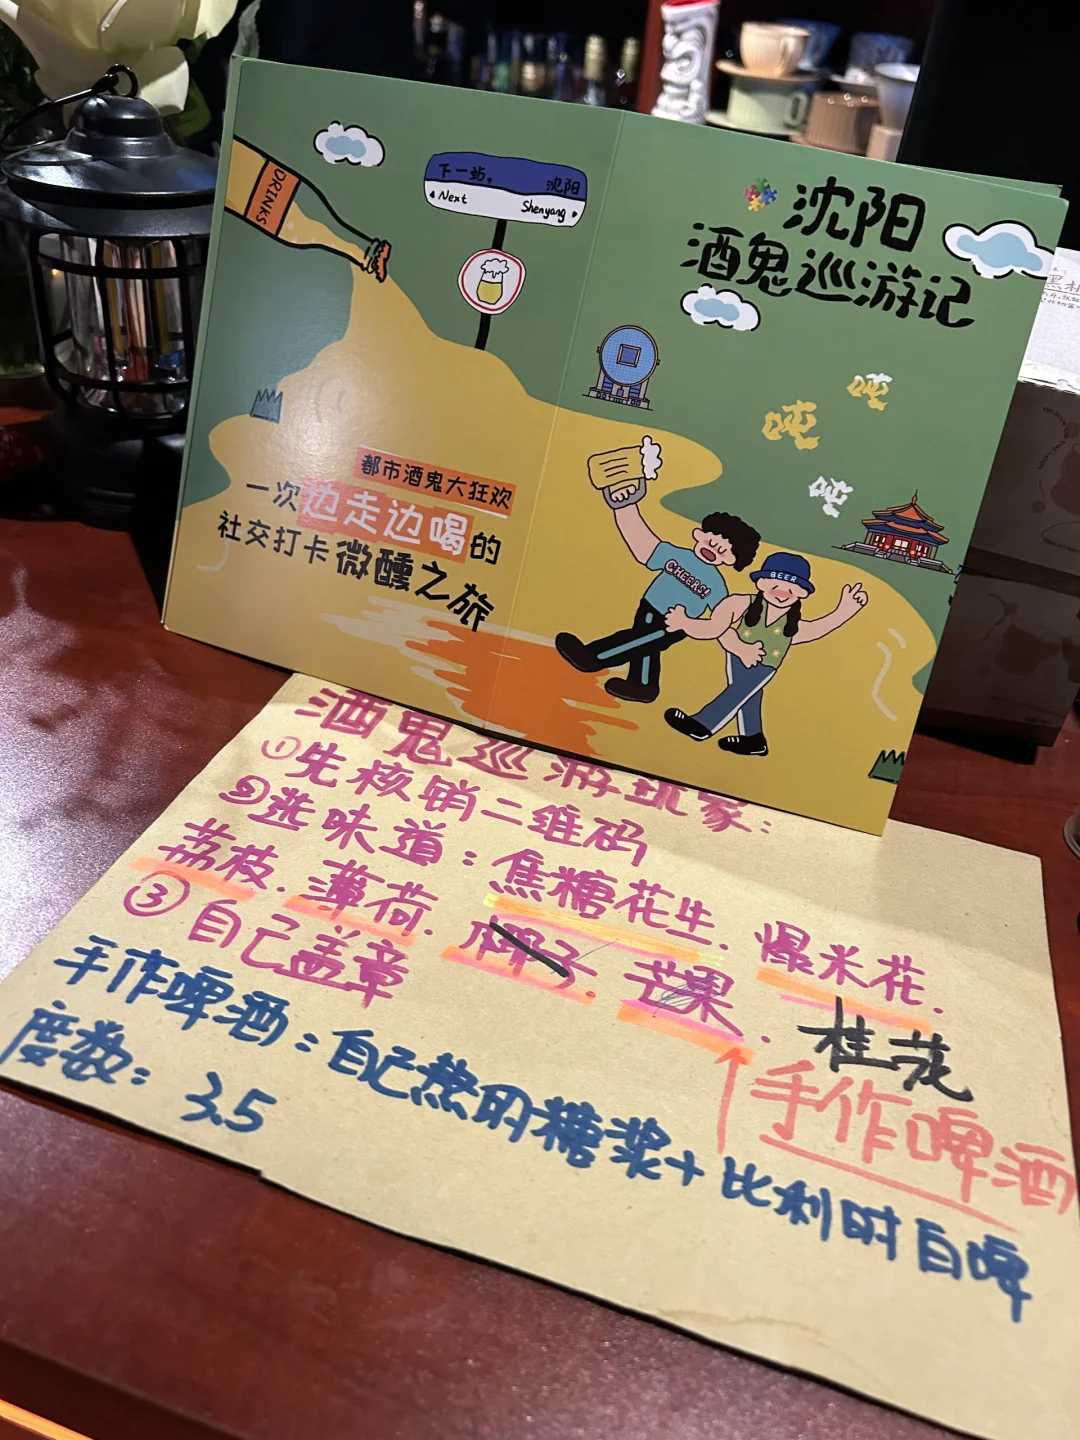 DRINKS
下一站。 沈阳
Next
Shenyang
沈阳
酒鬼巡游记
吨
吨
吨
都市酒鬼大狂欢
一次边走边喝的
社交打卡微醺之旅
CHEERS!
BEER
酒鬼巡游玩家：
①先核销二维码
②选味道：焦糖花生. 爆米花.
荔枝. 薄荷. 椰子. 芒果. 桂花
③自己盖章
手作啤酒
手作啤酒：自己熬的糖浆+比利时白啤
度数：3.5